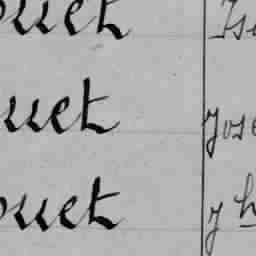 ouet Isi
uet Jose
ouet J h